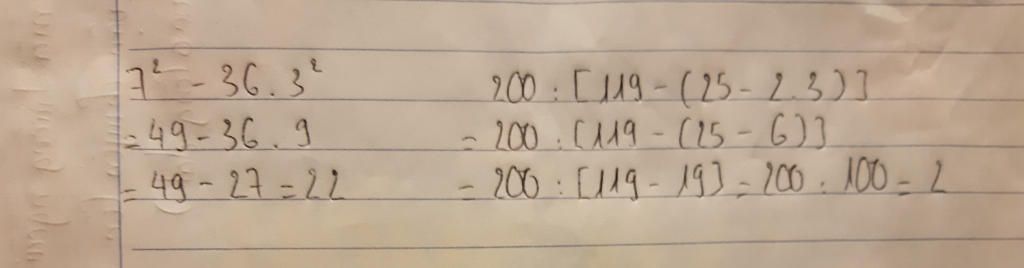 7² - 36 . 3²
= 49 - 36 . 9
= 49 - 27 = 22
200 : [119 - (25 - 2.3)]
= 200 : [119 - (25 - 6)]
= 200 : [119 - 19] = 200 : 100 = 2